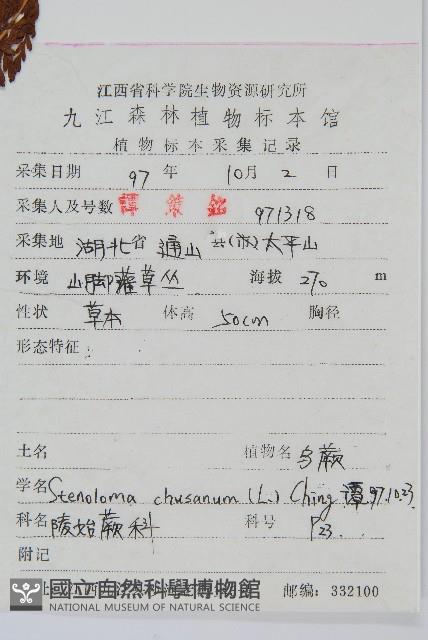 江西省科学院生物资源研究所
九江森林植物标本馆
植物标本采集记录
采集日期 97 年 10月 2 日
采集人及号数 譚策銘 971318
采集地 湖北省 通山 县(市) 太平山
环境 山脚灌草丛 海拔 270 m
性状 草本 体高 50cm 胸径
形态特征:
土名 植物名 乌蕨
学名 Stenoloma chusanum (L.) Ching 谭 97.10.23.
科名 陵始蕨科 科号 P23.
附记
邮编: 332100
國立自然科學博物館
NATIONAL MUSEUM OF NATURAL SCIENCE